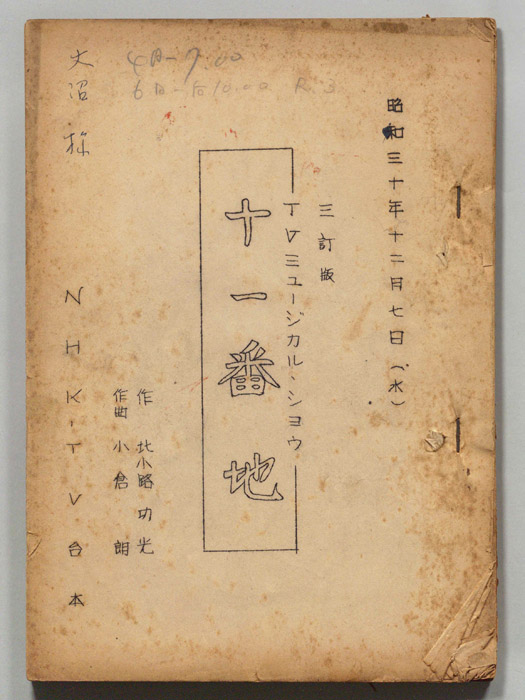 昭和三十年十二月七日（水）
三訂版
TVミュージカル・ショウ
十一番地
作 北小路功光
作曲 小倉朗
NHK・TV台本
大沼様
4日-7.00
6日-后10.00 R.3